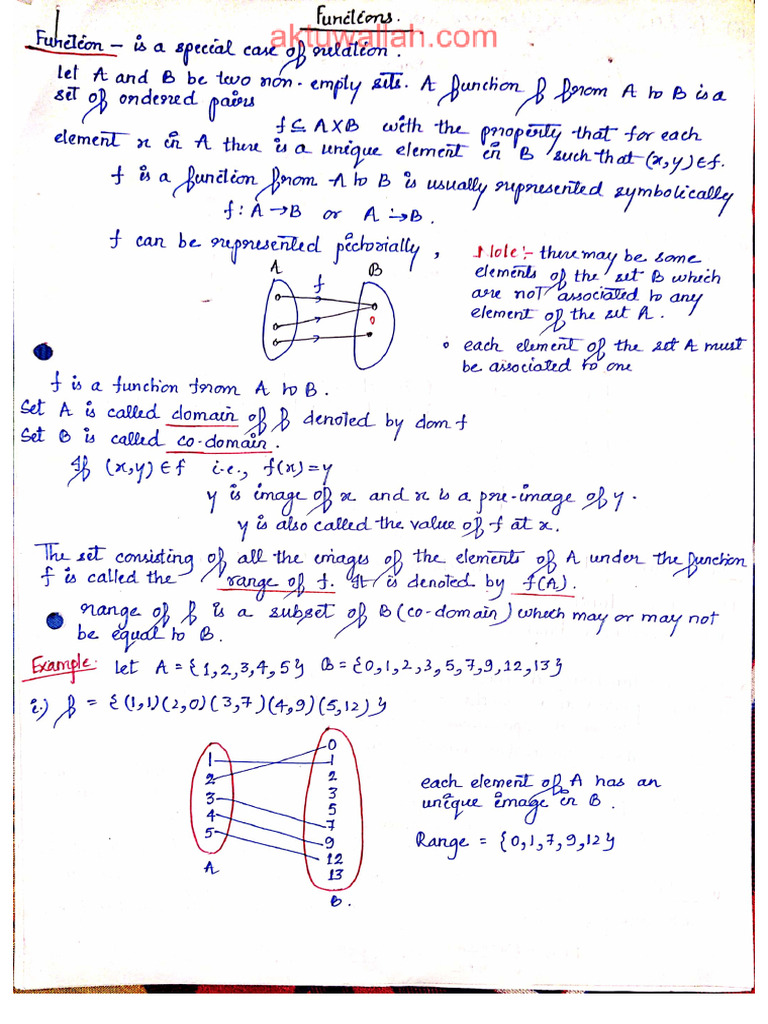 Functions.
aktuwallah.com
Function - is a special case of relation.
let A and B be two non-empty sets. A function f from A to B is a
set of ordered pairs
f ⊆ A X B with the property that for each
element x in A there is a unique element in B such that (x,y) ∈ f.
f is a function from A to B is usually represented symbolically
f : A → B or A → B.
f can be represented pictorially ,
Note :- there may be some
elements of the set B which
are not associated to any
element of the set A.
each element of the set A must
be associated to one
A
B
f
f is a function from A to B.
Set A is called domain of f denoted by dom f
Set B is called co-domain.
If (x,y) ∈ f i.e., f(x) = y
y is image of x and x is a pre-image of y.
y is also called the value of f at x.
The set consisting of all the images of the elements of A under the function
f is called the range of f. It is denoted by f(A).
range of f is a subset of B (co-domain) which may or may not
be equal to B.
Example: let A = {1,2,3,4,5} B = {0,1,2,3,5,7,9,12,13}
i.) f = {(1,1)(2,0)(3,7)(4,9)(5,12)}
1
2
3
4
5
A
0
1
2
3
5
7
9
12
13
B.
each element of A has an
unique image in B.
Range = {0,1,7,9,12}